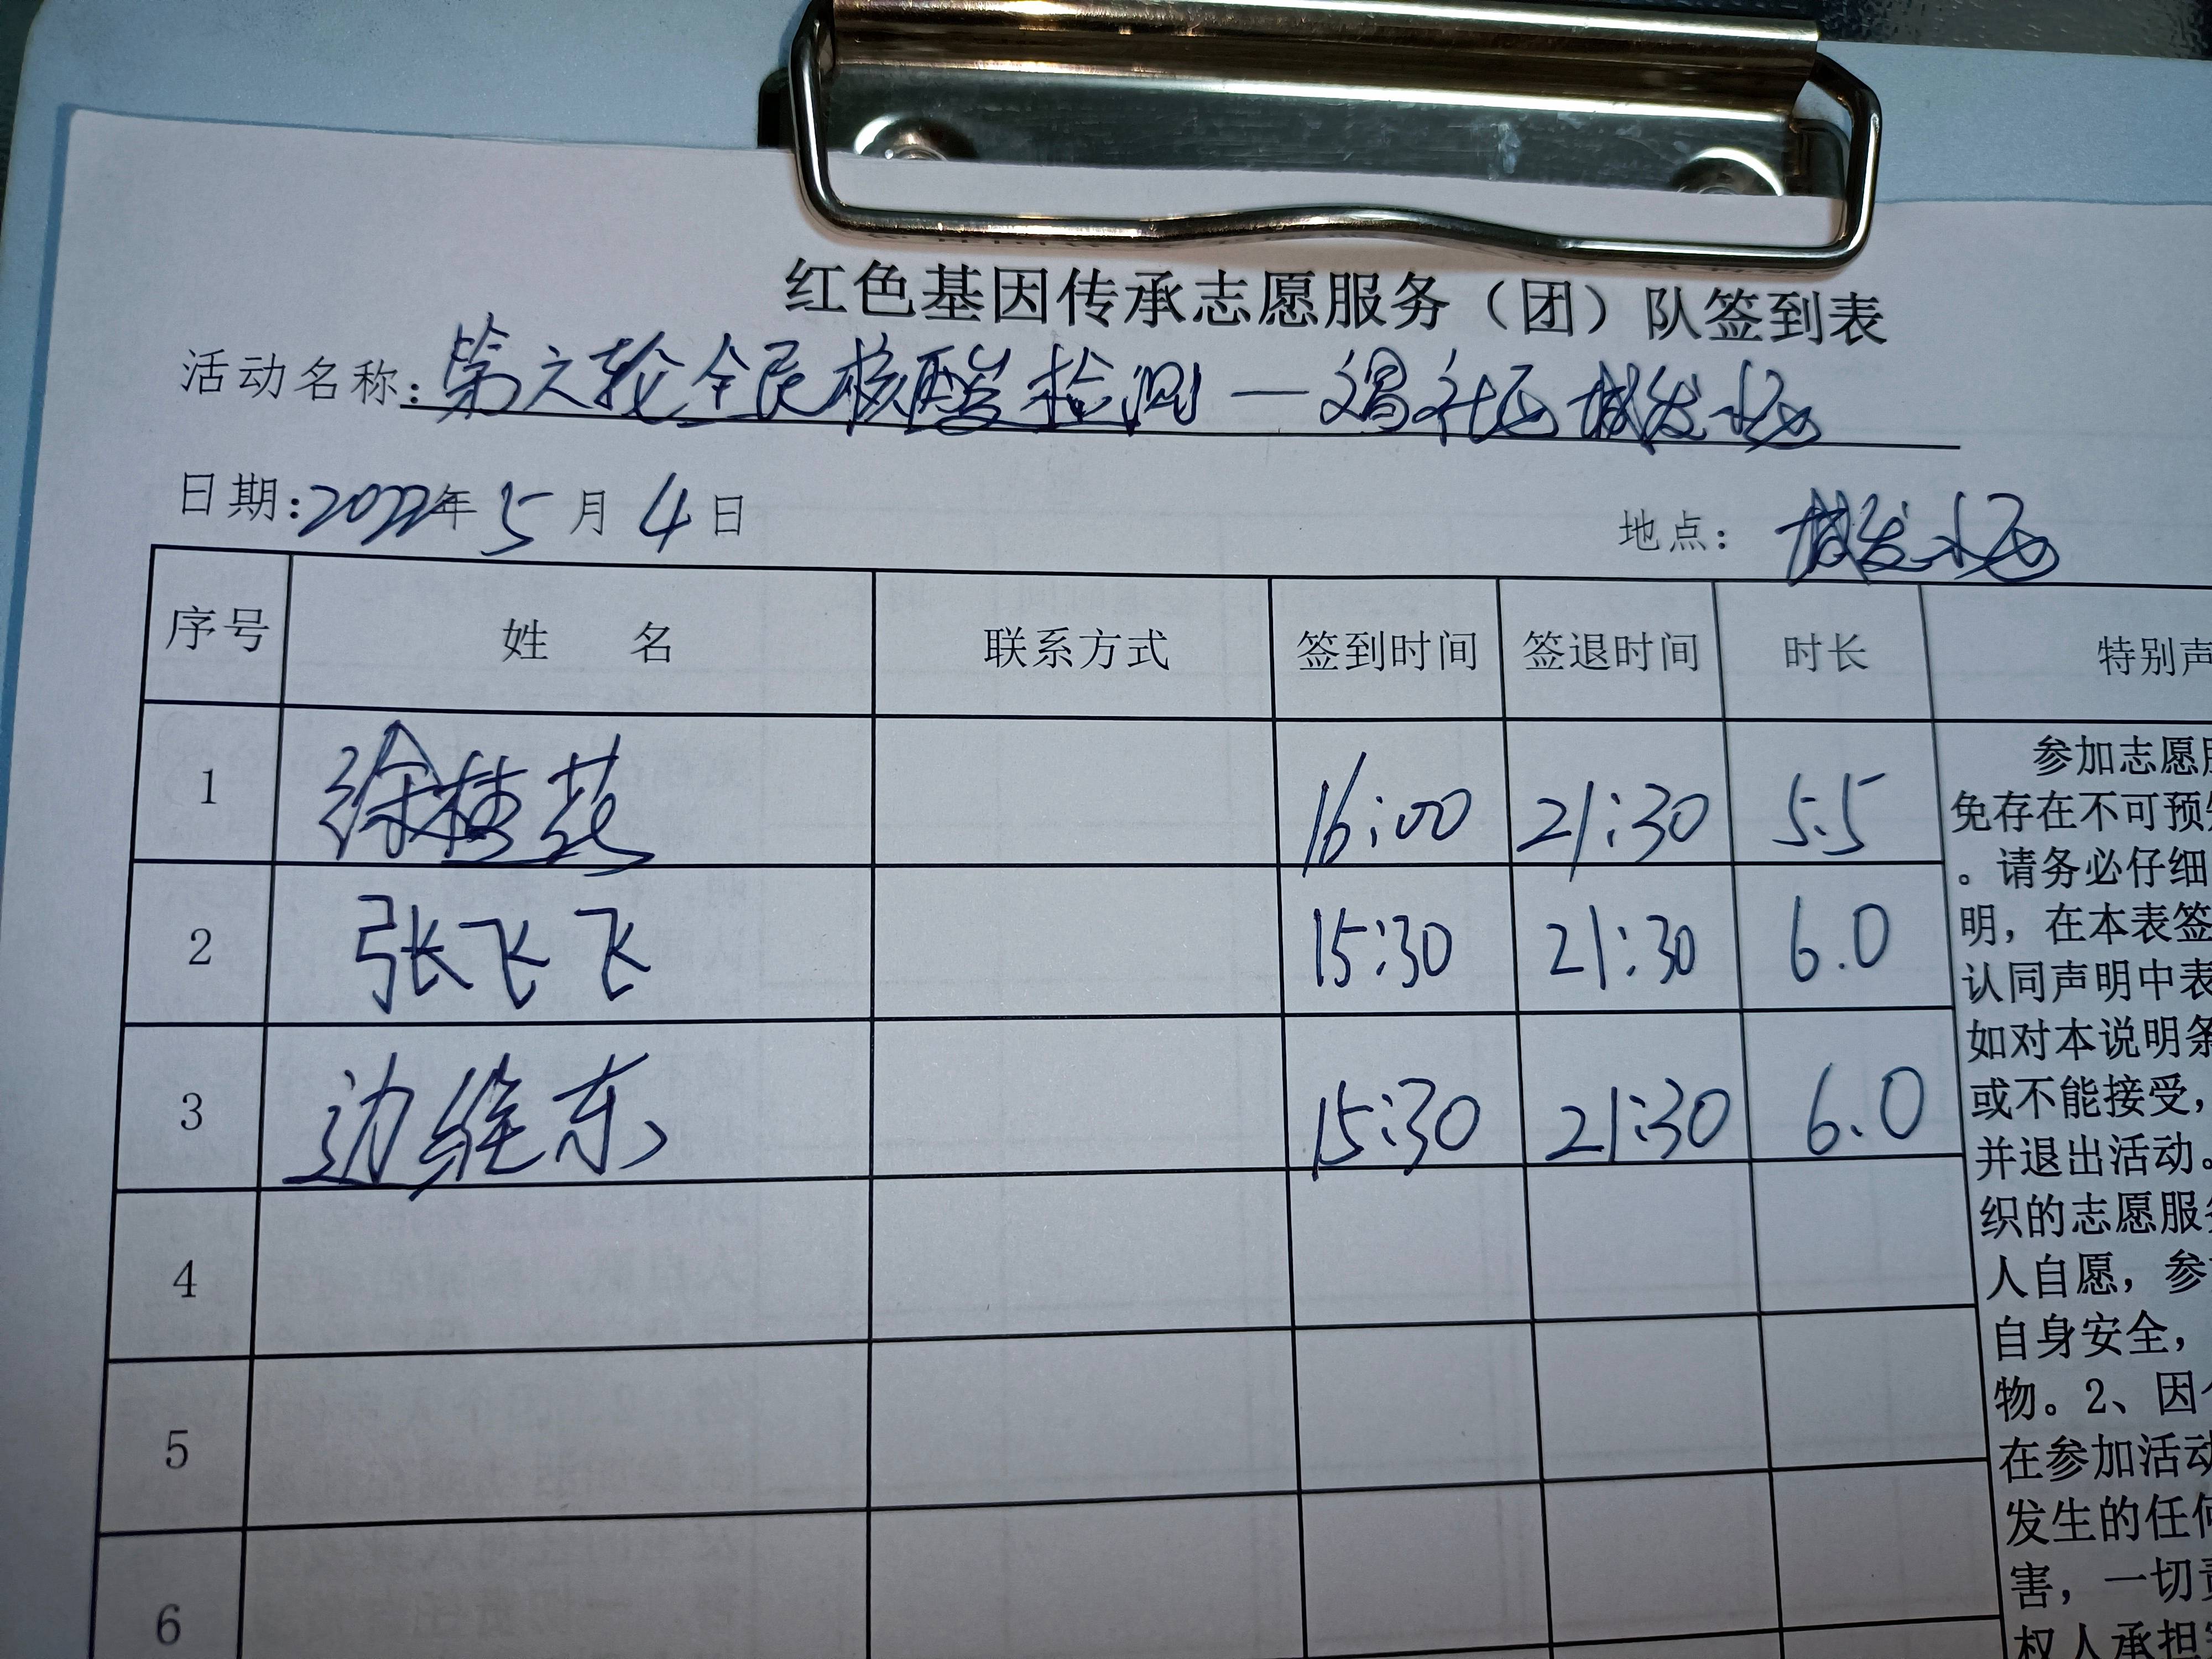 红色基因传承志愿服务（团）队签到表
活动名称：第六轮全民核酸检测—社区城发水
日期：2022年5月4日
地点：城发水
序号 姓 名 联系方式 签到时间 签退时间 时长 特别声
1 徐桂 16:00 21:30 5.5
2 张飞飞 15:30 21:30 6.0
3 边维东 15:30 21:30 6.0
4
5
6
参加志愿
免存在不可预
。请务必仔细
明，在本表签
认同声明中表
如对本说明条
或不能接受，
并退出活动。
织的志愿服务
人自愿，参
自身安全，
物。2、因个
在参加活动
发生的任何
害，一切责
权人承担